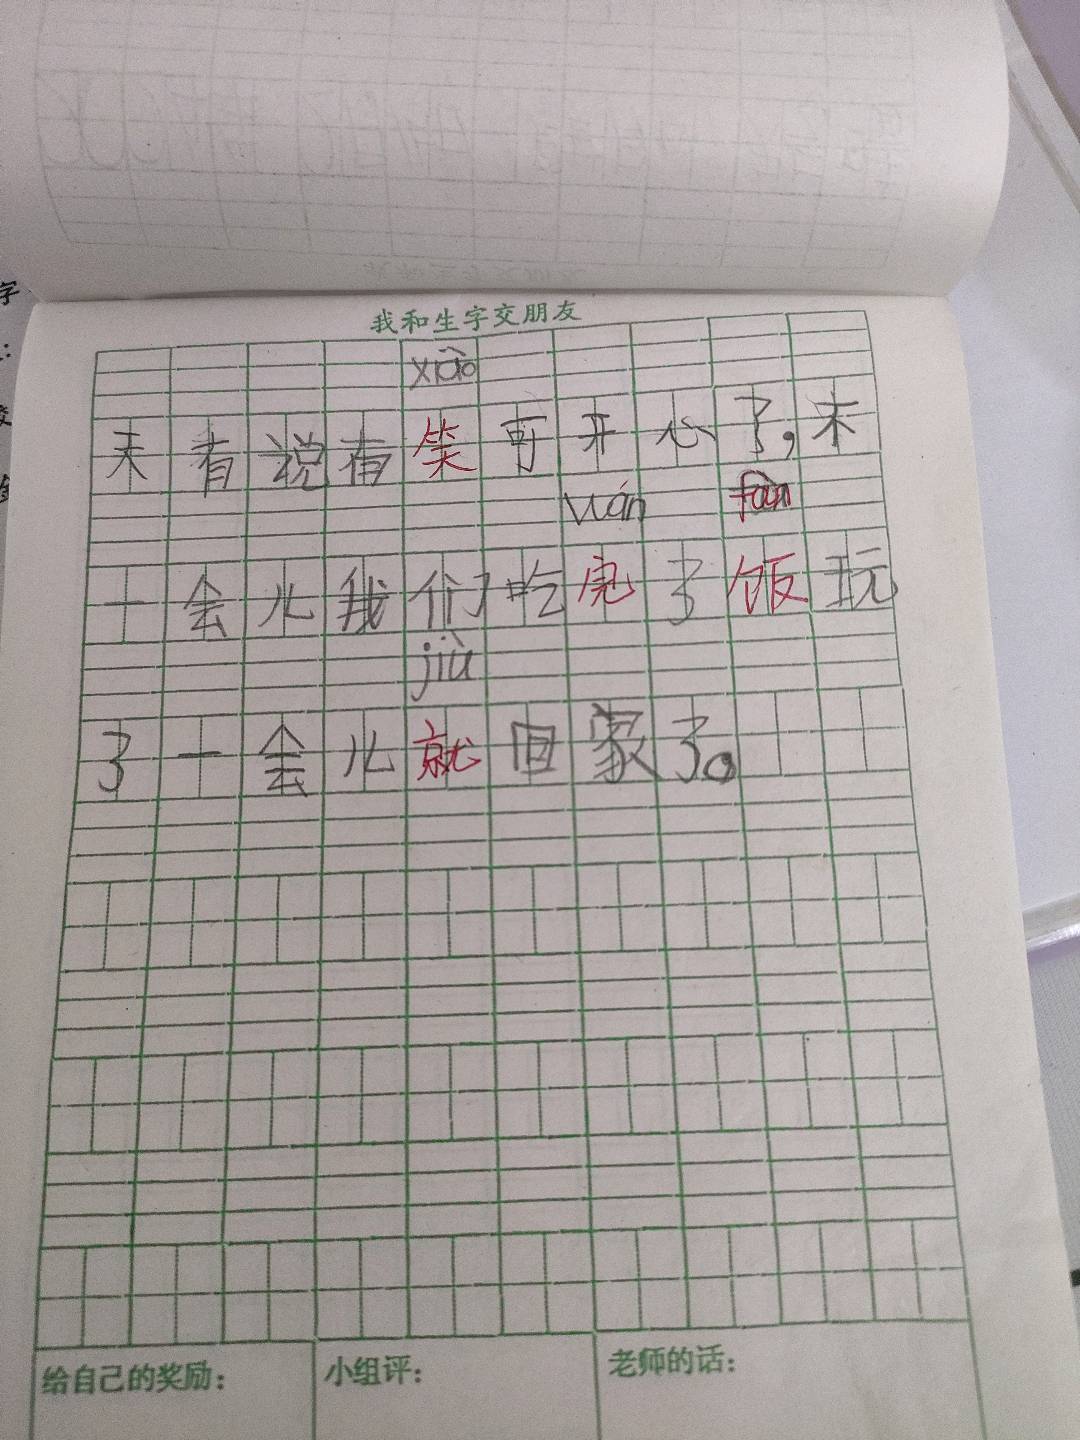 我和生字交朋友
xiào
有说有笑可开心了,不
wán fàn
一会儿我们吃完了饭玩
jiù
了一会儿就回家了。
给自己的奖励:
小组评:
老师的话:
字